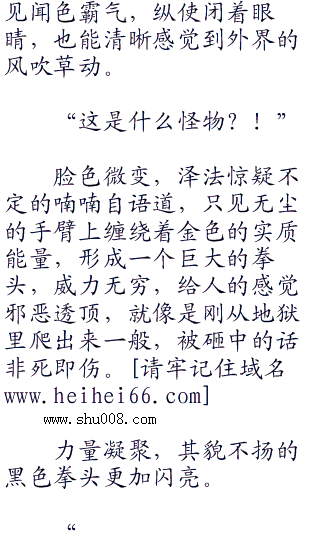 见闻色霸气，纵使闭着眼
睛，也能清晰感觉到外界的
风吹草动。
“这是什么怪物？！”
脸色微变，泽法惊疑不
定的喃喃自语道，只见无尘
的手臂上缠绕着金色的实质
能量，形成一个巨大的拳
头，威力无穷，给人的感觉
邪恶透顶，就像是刚从地狱
里爬出来一般，被砸中的话
非死即伤。[请牢记住域名
www.heihei66.com]
www.shu008.com
力量凝聚，其貌不扬的
黑色拳头更加闪亮。
“